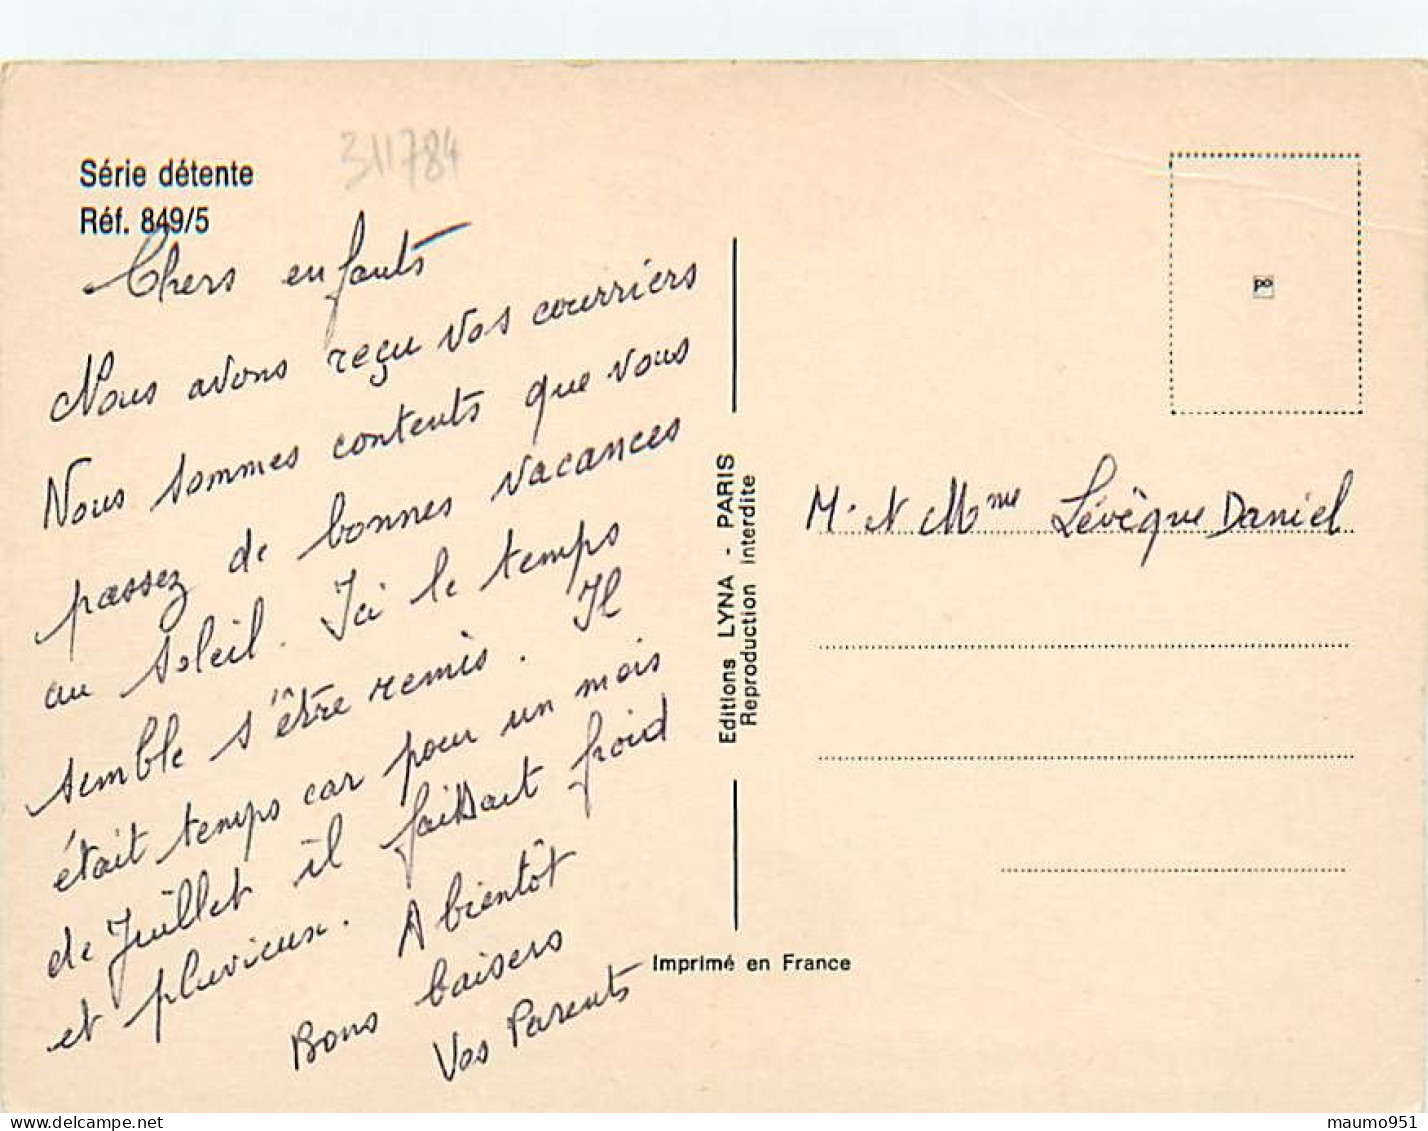 311784
Série détente
Réf. 849/5
Chers enfants
Nous avons reçu vos courriers
Nous sommes contents que vous
passez de bonnes vacances
au soleil. Ici le temps
semble s'être remis. Il
était temps car pour un mois
de Juillet il faisait froid
et pluvieux. A bientôt
Bons baisers
Vos Parents
Editions LYNA - PARIS
Reproduction interdite
Imprimé en France
M. et Mme Lévêque Daniel
maumo951